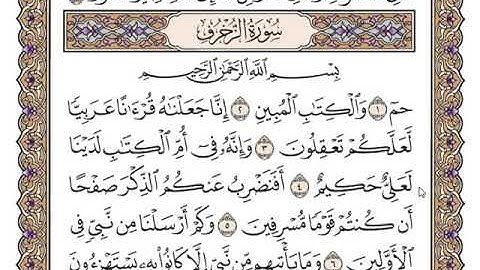 سُورَةُ الزُّخْرُفِ
بِسْمِ اللَّهِ الرَّحْمَٰنِ الرَّحِيمِ
حمٓ ١ وَالْكِتَابِ الْمُبِينِ ٢ إِنَّا جَعَلْنَاهُ قُرْءَانًا عَرَبِيًّا
لَّعَلَّكُمْ تَعْقِلُونَ ٣ وَإِنَّهُ فِي أُمِّ الْكِتَابِ لَدَيْنَا
لَعَلِيٌّ حَكِيمٌ ٤ أَفَنَضْرِبُ عَنكُمُ الذِّكْرَ صَفْحًا
أَن كُنتُمْ قَوْمًا مُّسْرِفِينَ ٥ وَكَمْ أَرْسَلْنَا مِن نَّبِيٍّ فِي
الْأَوَّلِينَ ٦ وَمَا يَأْتِيهِم مِّن نَّبِيٍّ إِلَّا كَانُوا بِهِ يَسْتَهْزِءُونَ